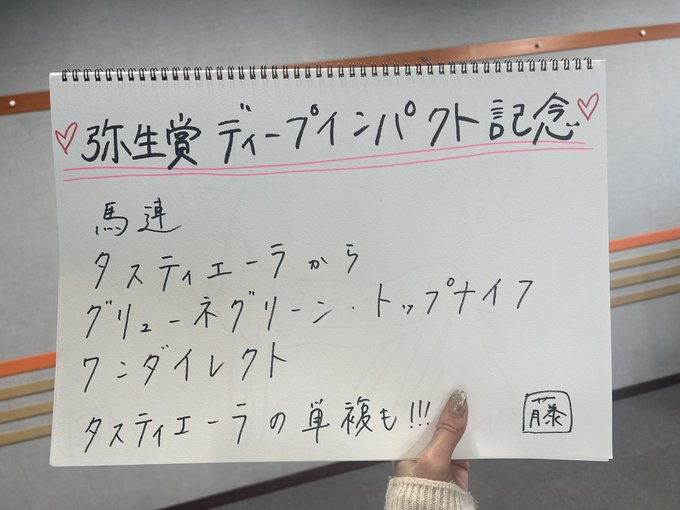 ♡弥生賞 ディープインパクト記念♡
馬連
タスティエーラから
グリューネグリーン・トップナイフ
ワンダイレクト
タスティエーラの単複も!!!
藤